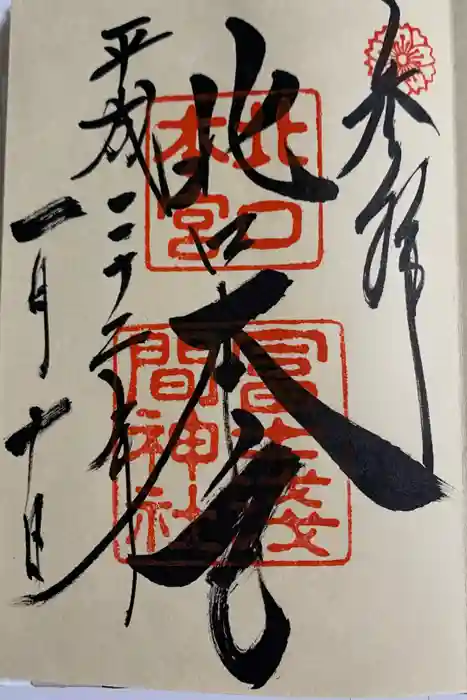 参拝
北口本宮
平成二十二年
一月十日
北口
本宮
冨士浅
間神社